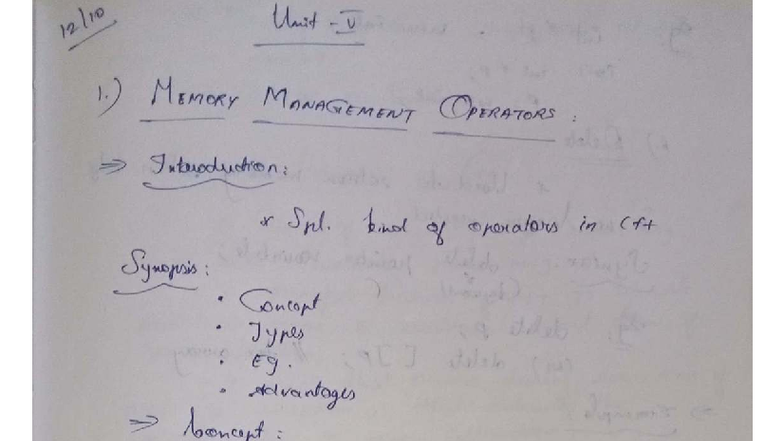 12/10
Unit - V
1.) MEMORY MANAGEMENT OPERATORS :
⇒ Introduction :
* Spl. kind of operators in C++
Synopsis :
• Concept
• Types
• Eg.
• Advantages
⇒ Concept :